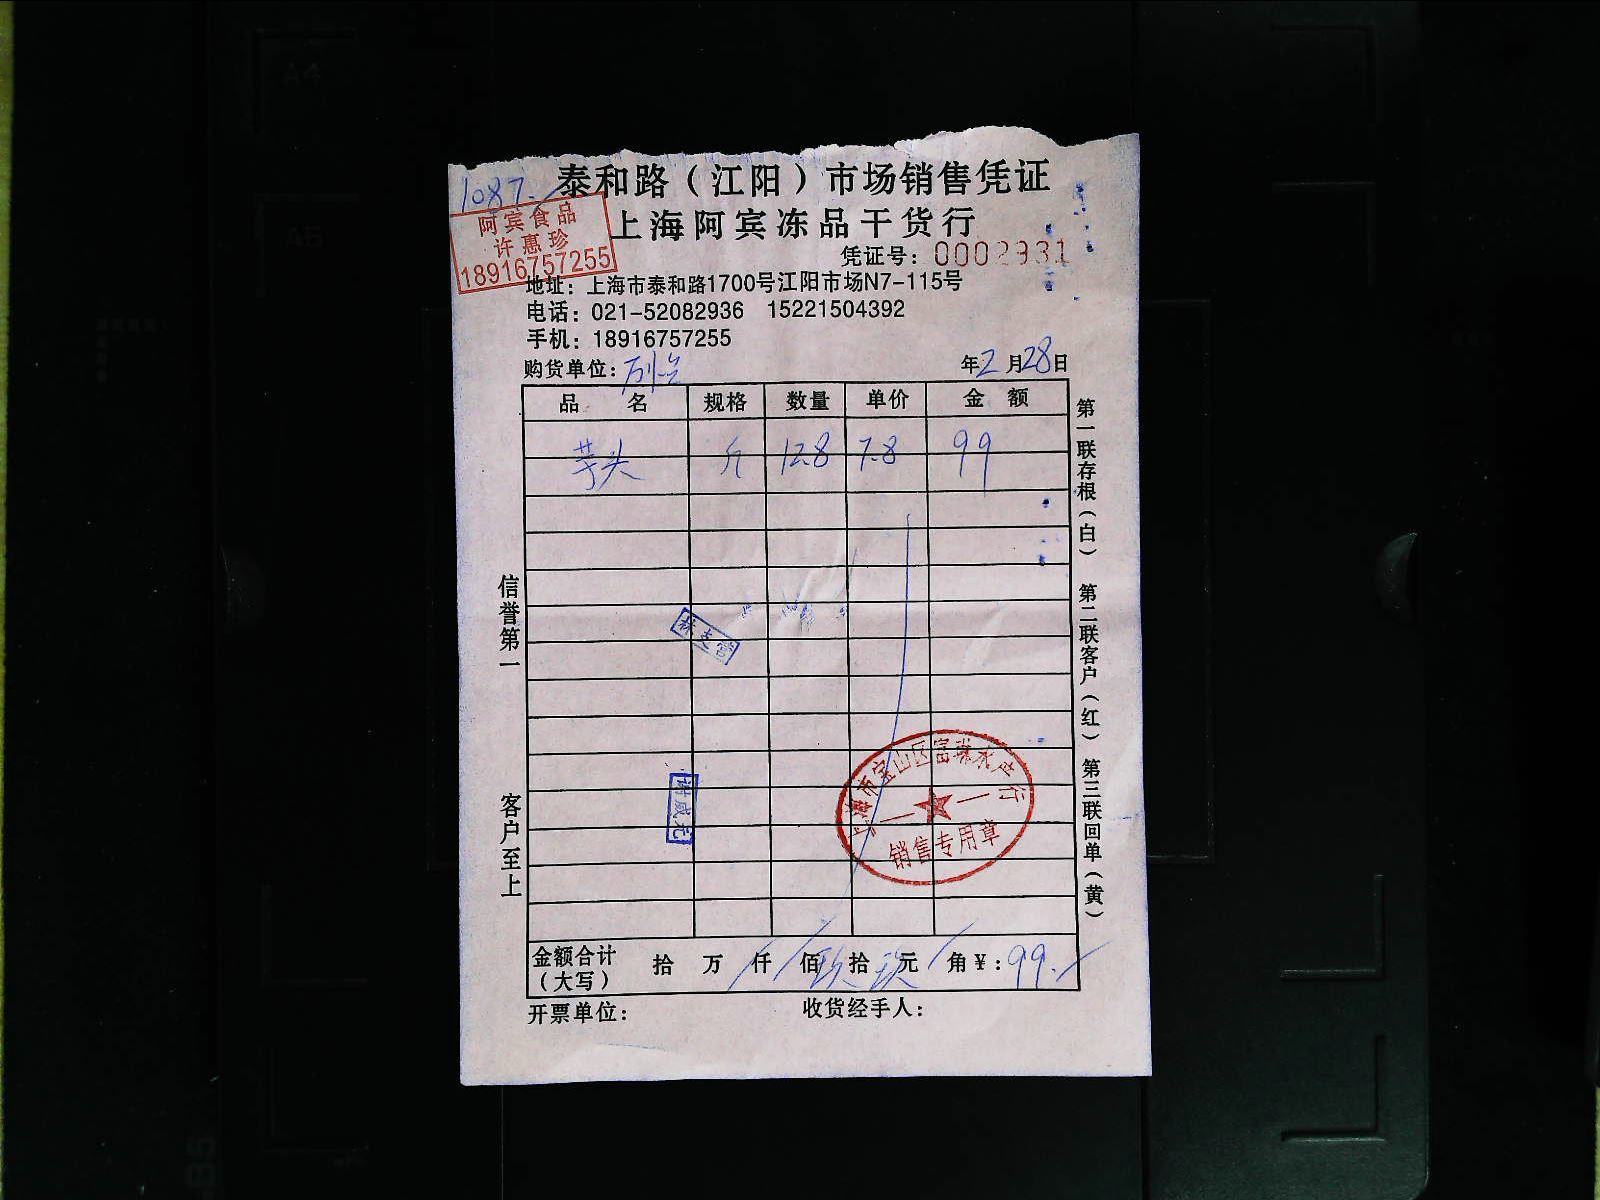 1087.
泰和路（江阳）市场销售凭证
上海阿宾冻品干货行
阿宾食品
许惠珍
18916757255
凭证号：0002931
地址：上海市泰和路1700号江阳市场N7-115号
电话：021-52082936 15221504392
手机：18916757255
购货单位：
年2月28日
品 名 规格 数量 单价 金 额
芋头 斤 12.8 7.8 99
信誉第一
客户至上
第一联存根（白） 第二联客户（红） 第三联回单（黄）
谢成元
上海市宝山区富琳水产行
销售专用章
金额合计（大写） 拾 万 仟 佰 玖 拾 玖 元 角 ¥：99.
开票单位： 收货经手人：
A4
A5
B5